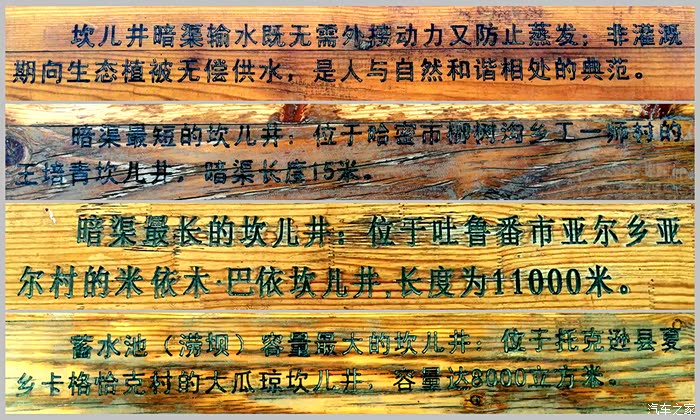 坎儿井暗渠输水既无需外接动力又防止蒸发；非灌溉
期向生态植被无偿供水，是人与自然和谐相处的典范。
暗渠最短的坎儿井：位于哈密市柳树沟乡工一师村的
王培青坎儿井，暗渠长度15米。
暗渠最长的坎儿井：位于吐鲁番市亚尔乡亚
尔村的米依木·巴依坎儿井,长度为11000米。
蓄水池（涝坝）容量最大的坎儿井：位于托克逊县夏
乡卡格恰克村的大瓜琼坎儿井，容量达8000立方米。
汽车之家